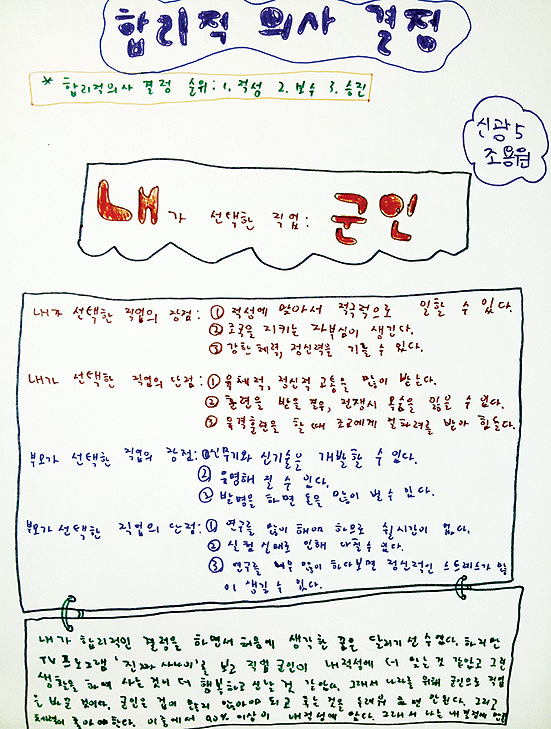 합리적 의사 결정
* 합리적의사 결정 순위: 1. 적성 2. 보수 3. 승진
신광 5
조용원
내가 선택한 직업: 군인
내가 선택한 직업의 장점: ① 적성에 맞아서 적극적으로 일할 수 있다.
② 조국을 지키는 자부심이 생긴다.
③ 강한체력, 정신력을 기를 수 있다.
내가 선택한 직업의 단점: ① 육체적, 정신적 고통을 많이 받는다.
② 훈련을 받을 경우, 전쟁시 목숨을 잃을 수 있다.
③ 유격훈련을 할 때 조교에게 얼차려를 받아 힘들다.
부모가 선택한 직업의 장점: ① 신무기와 신기술을 개발할 수 있다.
② 유명해 질 수 있다.
③ 발명을 하면 돈을 많이 벌 수 있다.
부모가 선택한 직업의 단점: ① 연구를 많이 해야 하므로 쉴시간이 없다.
② 실험 실패로 인해 다칠 수 있다.
③ 연구를 너무 많이 하다보면 정신적인 스트레스가 많
이 생길 수 있다.
내가 합리적인 결정을 하면서 처음에 생각한 꿈은 달리기 선수였다. 하지만
TV 프로그램 '진짜 사나이'를 보고 직업 군인이 내적성에 더 맞는 것 같았고 그런
생활을 하며 사는 것이 더 행복하고 신날 것 같았다. 그래서 나라를 위해 군인으로 직업
을 바꾼 것이다. 군인은 겁이 많지 않아야 되고 죽는 것을 두려워 하면 안된다. 그리고
체력이 좋아야한다. 이중에서 90% 이상이 내적성에 맞다. 그래서 나는 내 결정에